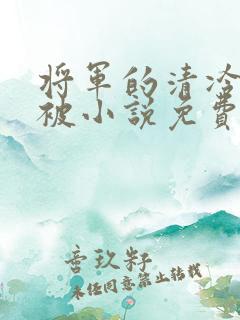 将军的清冷
被小说免费
音玖籽
未经同意禁止转载